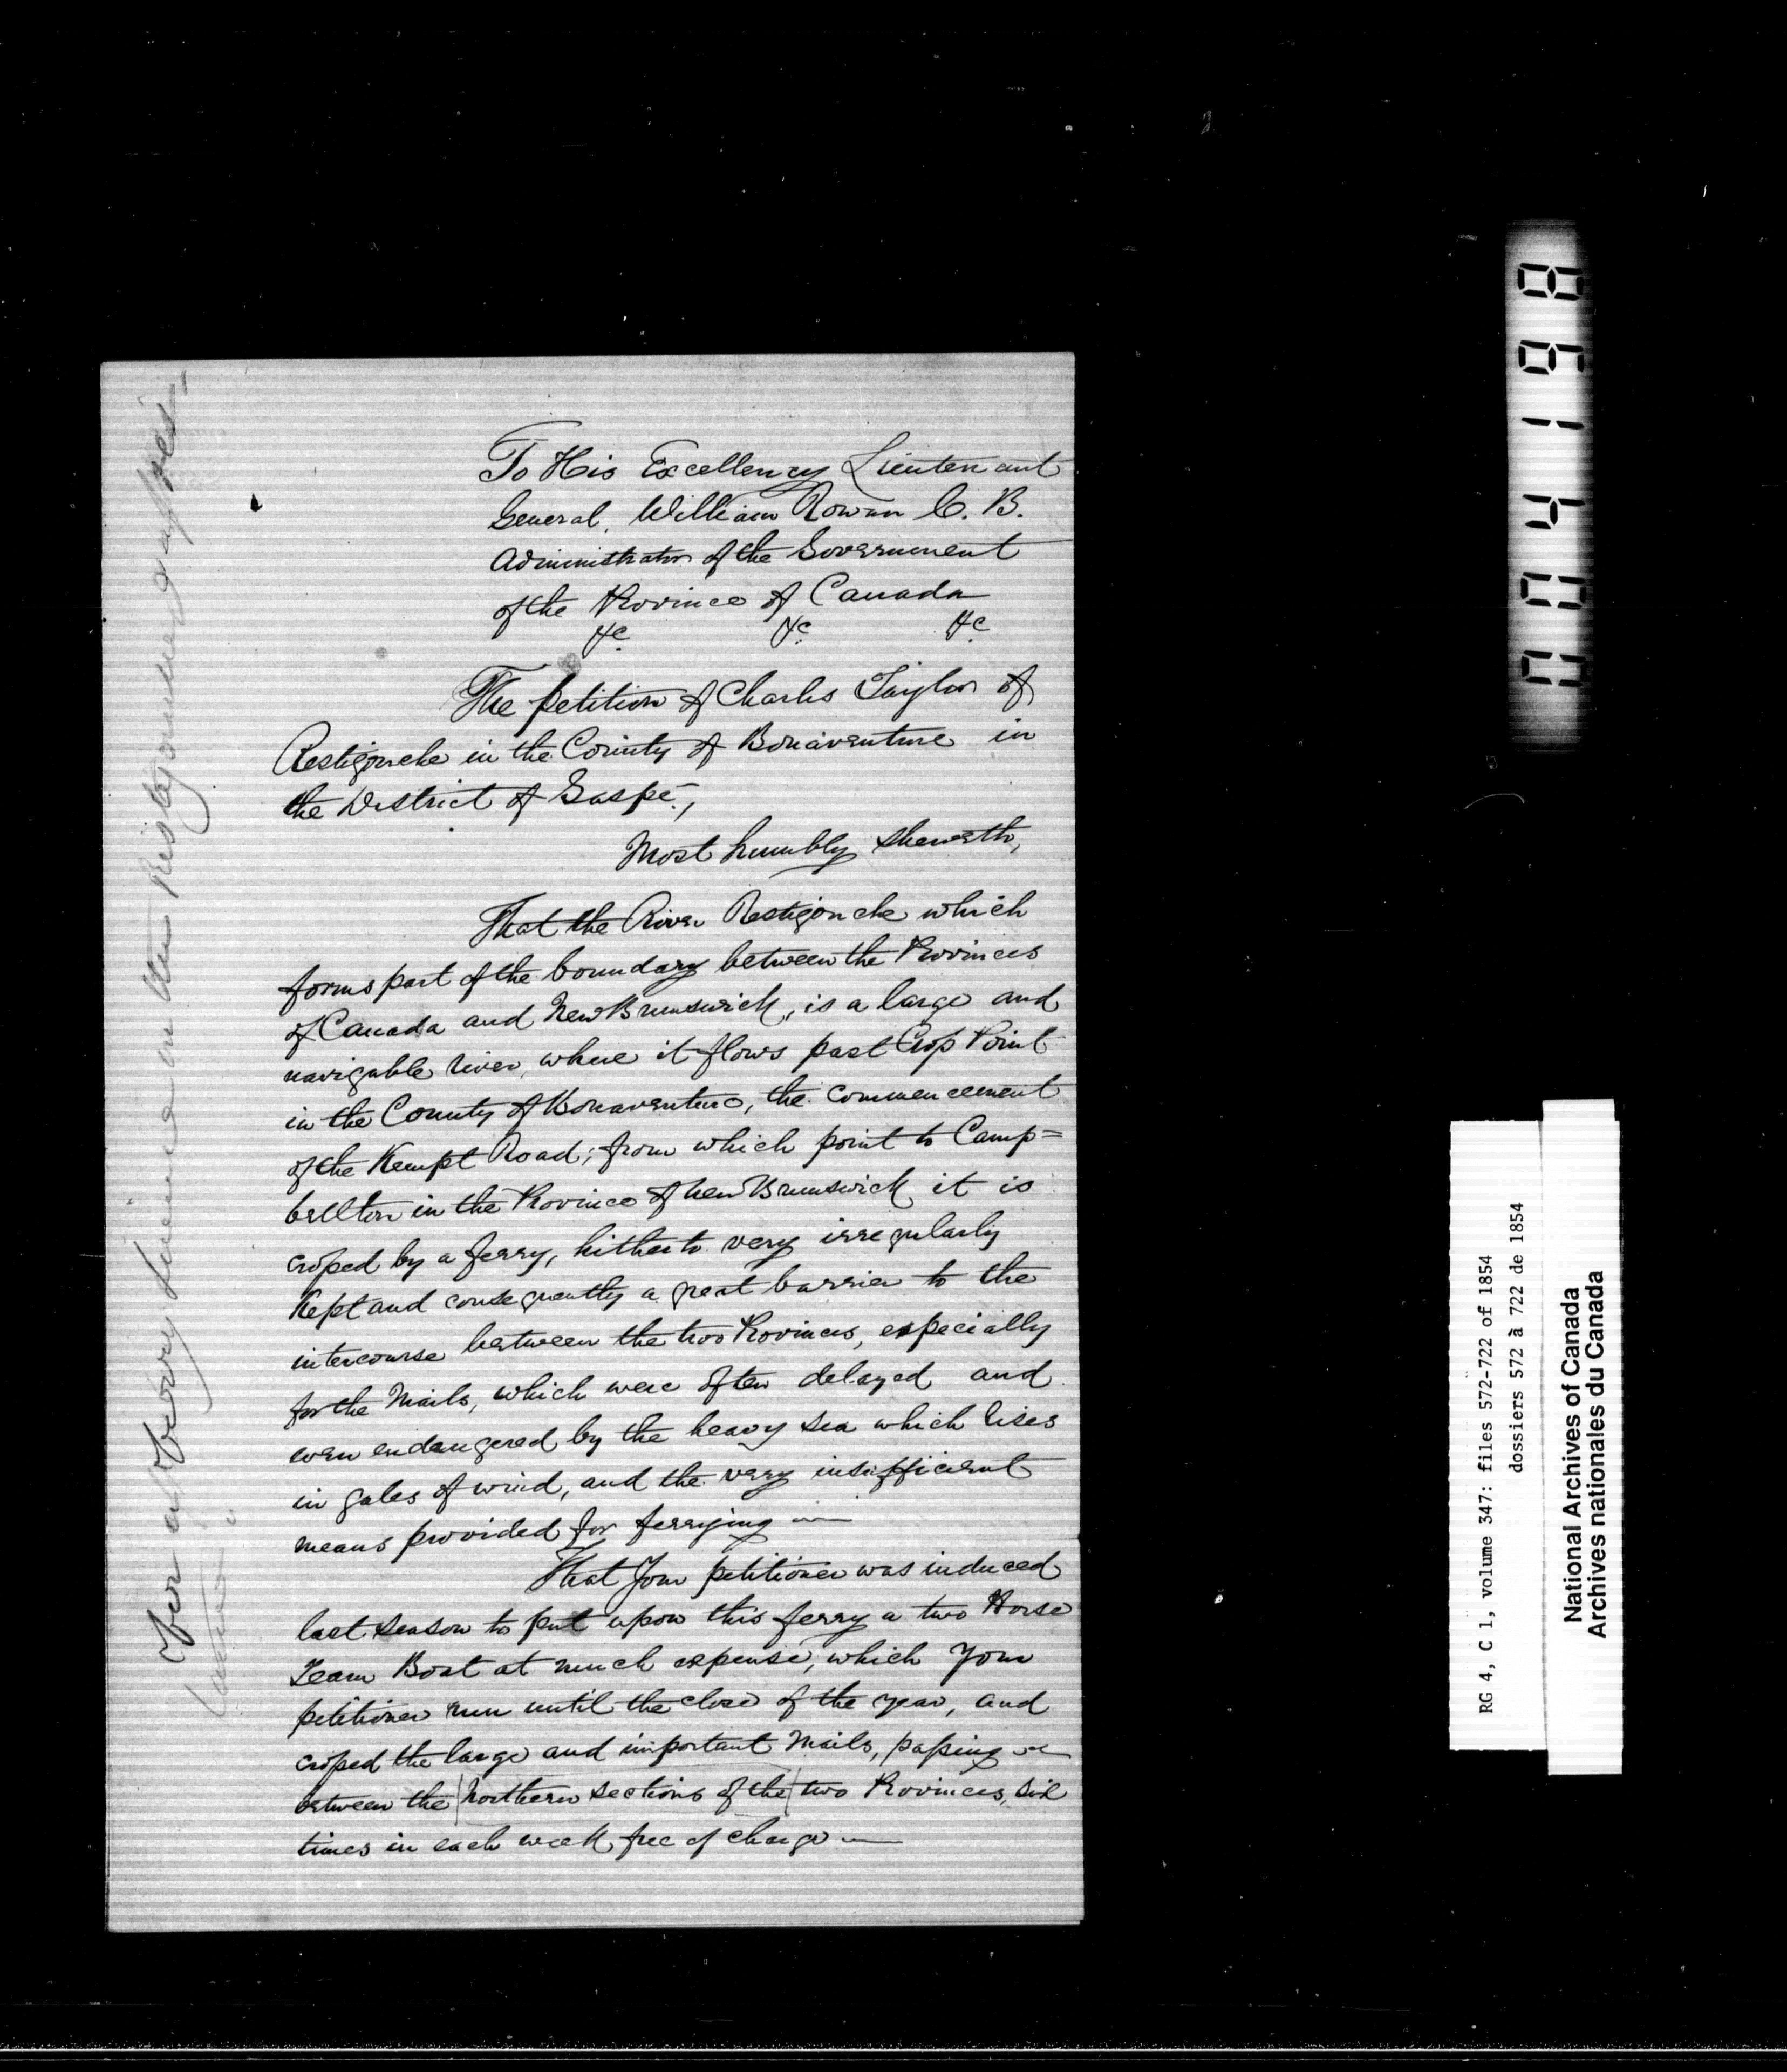 To His Excellency Lieutenant
General, William Rowan C. B.
Administrator of the Government
of the Province of Canada
&c. &c. &c
The petition of Charles Taylor of
Restigouche in the County of Bonaventure in
the District of Gaspé,
Most humbly sheweth,
That the River Restigouche which
forms part of the boundary between the Provinces
of Canada and New Brunswick, is a large and
navigable river, where it flows past Cross Point
in the County of Bonaventure, the commencement
of the Kempt Road; from which point to Camp=
bellton in the Province of New Brunswick it is
crossed by a ferry, hitherto very irregularly
kept and consequently a great barrier to the
intercourse between the two Provinces, especially
for the Mails, which were often delayed and
even endangered by the heavy sea which rises
in gales of wind, and the very insufficient
means provided for ferrying —
That Your petitioner was induced
last season to put upon this ferry a two Horse
Team Boat at much expense, which Your
petitioner run until the close of the year, and
crossed the large and important Mails, passing
between the Northern sections of the two Provinces, six
times in each week free of charge —
For a Ferry License on the Restigouche
004198
RG 4, C 1, volume 347: files 572-722 of 1854
dossiers 572 à 722 de 1854
National Archives of Canada
Archives nationales du Canada